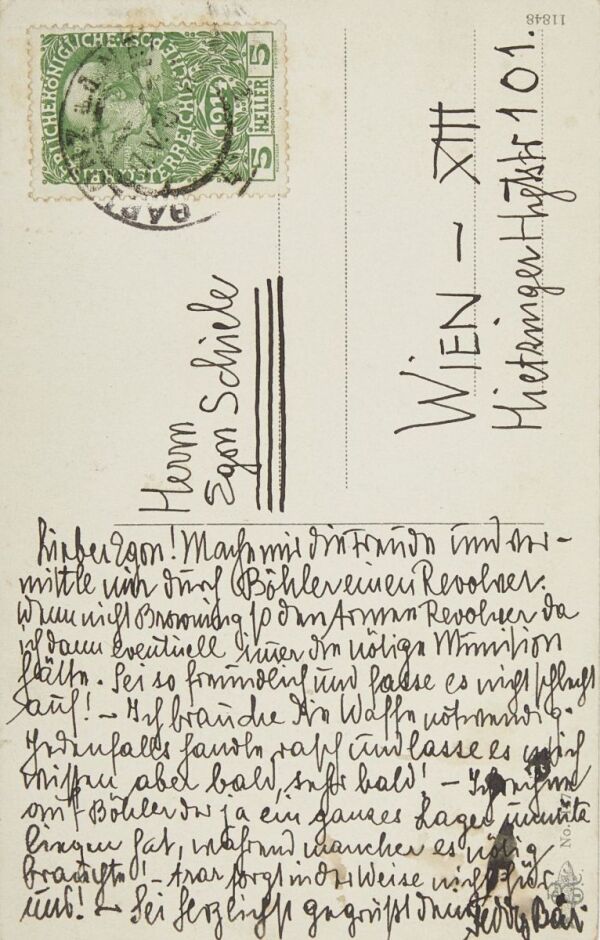 11848
5 HELLER 5
1914
Herrn
Egon Schiele
WIEN – XIII
Hietzinger Hptstr 101.
Lieber Egon! Mache mir die Freude und ver-
mittle mir durch Böhler einen Revolver.
Wenn nicht Browning so den Armee Revolver da
ich dann eventuell immer die nötige Munition
hätte. Sei so freundlich und fasse es nicht schlecht
auf! – Ich brauche die Waffe nötwendig.
Jedenfalls handle rasch und lasse es mich
wissen aber bald, sehr bald! – Ich rechne
auf Böhler der ja ein ganzes Lager unnütz
liegen hat, während mancher es nötig
brauchte! – sorgt in der Weise nicht für
uns! – Sei herzlichst gegrüßt
No.